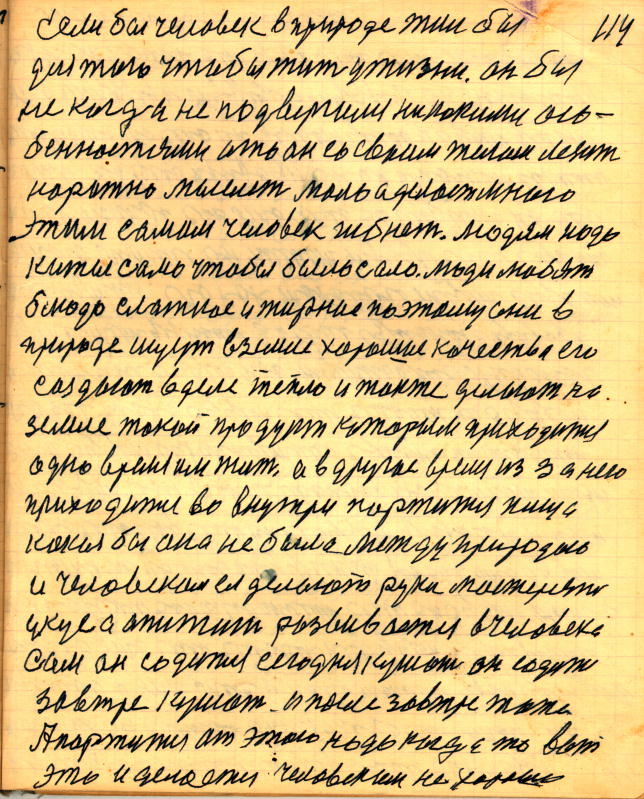 114
Если бы человек в природе жил бы
для того чтобы жить у жизни. он бы
не когда не подвергался никакими осо-
бенностями а то он со своим телом лежит
коротно мыслит мало а делает много
этим самым человек гибнет. Людям надо
китья само чтобы было сало. люди любят
блюдо слаткое и жирное поэтому они в
природе ищут в земле хорошие качества его
создают в деле тепло и также делают на
земле такой продукт которым приходится
одно время им жить, а в другое время из за него
приходится во внутри портится пища
какая бы она не была между природою
и человеком ея делают руки мастерство
укуса апитит развивается в человека
Сам он садится сегодня кушать он садится
завтре кушать и после завтре тоже
А портится от этого надо когда то быть
это и делается человеком не хорошо